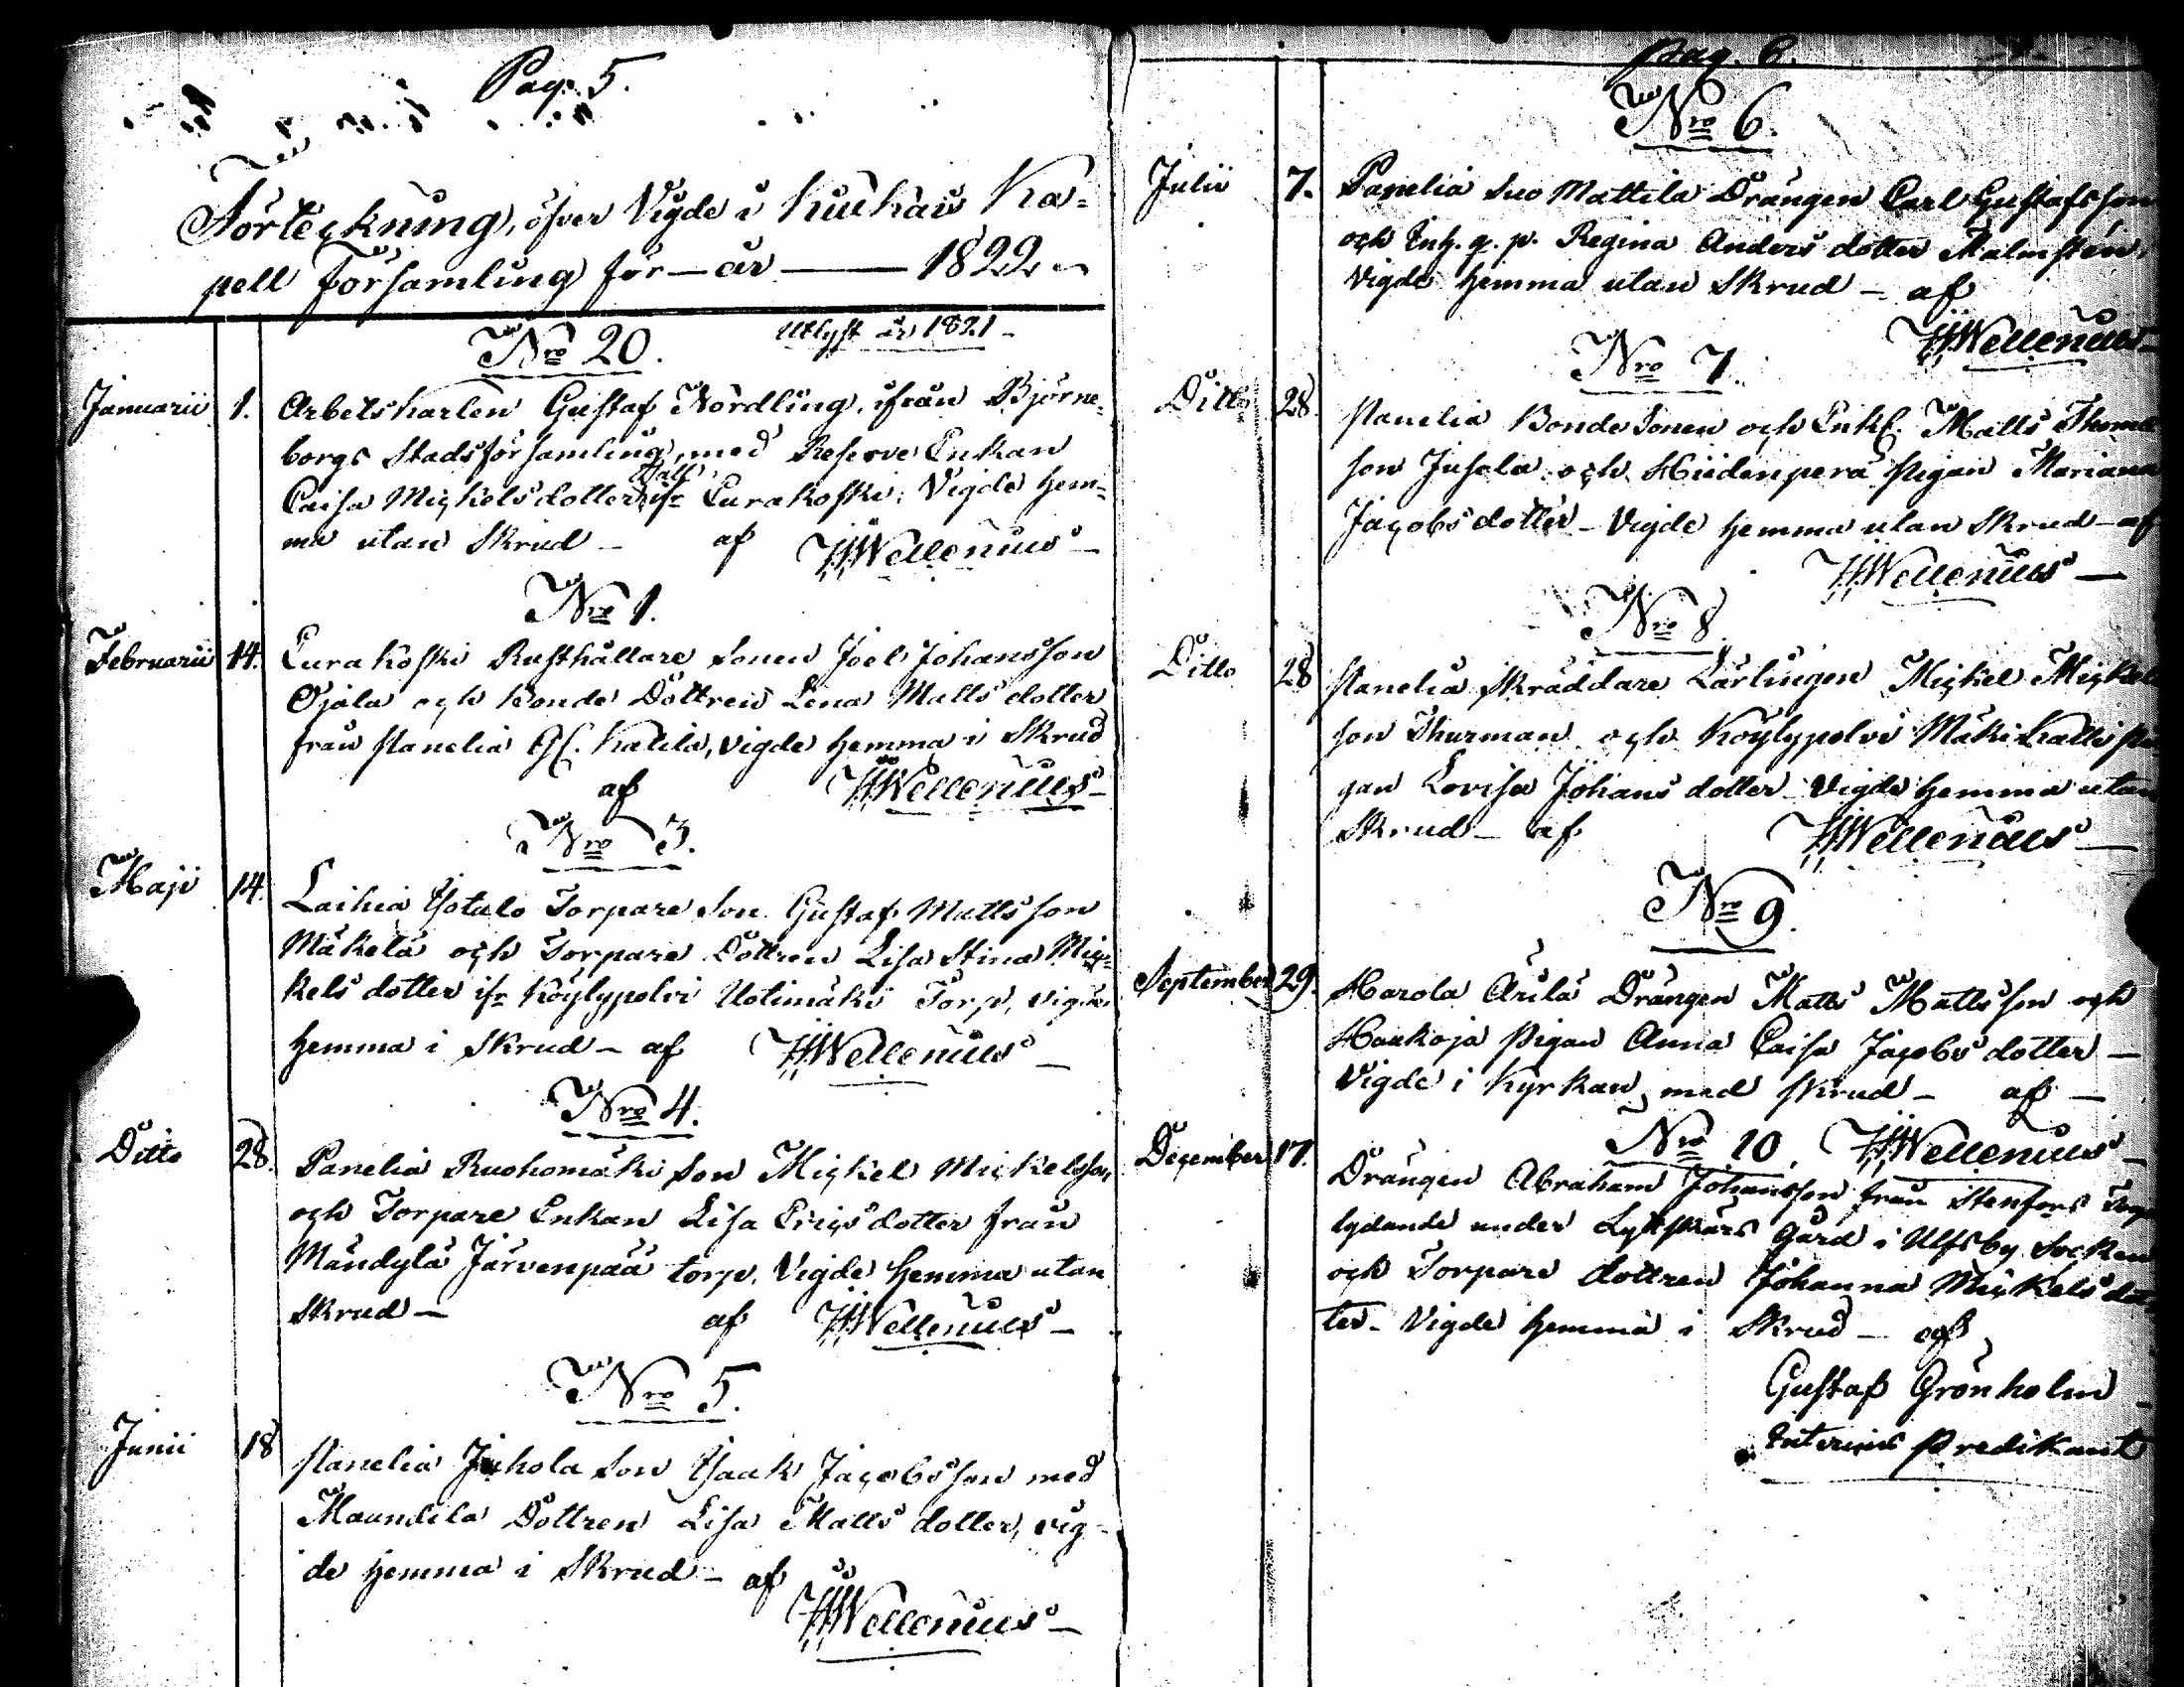 Pag. 5.
Förteckning, öfver Vigde i Kiukais Ka-
pell Församling för — år — 1822.
Nro 20. Utlyst år 1821 -
Januarii 1. Arbetskarlen Gustaf Nordling, ifrån Björne-
borgs Stadsförsamling, med Reserve Enkan
Caisa Mickelsdotter ifr Eurakoski; Vigde hem-
ma utan Skrud - af HWellenius -
Nro 1.
Februarii 14. Eurakoski Rusthållare Sonen Joel Johansson
Ojala och Bonde Dottren Lena Matts dotter
från Panelia Katila, vigde hemma i Skrud
af HWellenius -
Nro 3.
Maji 14. Laihia Isotalo Torpare Son Gustaf Mattsson
Mäkelä och Torpare Dottren Lisa Stina Mic-
kels dotter ifr Köylypolvi Uotimäki Torp, vigde
hemma i Skrud - af HWellenius -
Nro 4.
Ditto 28. Panelia Ruohomäki Son Mickel Mickelsson
och Torpare Enkan Lisa Ericsdotter från
Mändylä Järvenpää torp. Vigde hemma utan
Skrud - af HWellenius -
Nro 5.
Junii 18 Panelia Juhola Son Isaak Jacobsson med
Maundila Dottren Lisa Matts dotter, vig-
de hemma i Skrud - af
HWellenius -
Pag. 6.
Nro 6.
Julii 7. Panelia Suo Mattila Drängen Carl Gustafsson
och Inh. q. p. Regina Anders dotter Malmstén,
Vigde hemma utan Skrud - af
HWellenius -
Nro 7.
Ditto 28. Panelia Bonde Sonen och Enkl. Matts Thomas
son Jusela och Hiidenperä Pigan Mariana
Jacobs dotter - Vigde hemma utan Skrud - af
HWellenius -
Nro 8.
Ditto 28 Panelia Skräddare Lärlingen Mickel Mickels
son Thurman och Köylypolvi Mäki Katti Pi
gan Lovisa Johans dotter - Vigde hemma utan
Skrud - af HWellenius -
Nro 9.
September 29. Harola Arila Drängen Matts Mattsson och
Haukoja Pigan Anna Caisa Jacobs dotter -
Vigde i Kyrkan med Skrud - af -
Nro 10. HWellenius -
December 17. Drängen Abraham Johansson från Stenfors Torp
lydande under Lyttskärs Gård i Ulfsby Socken
och Torpare dottren Johanna Mickels dot
ter - Vigde hemma i Skrud - af
Gustaf Grönholm
Interims Predikant